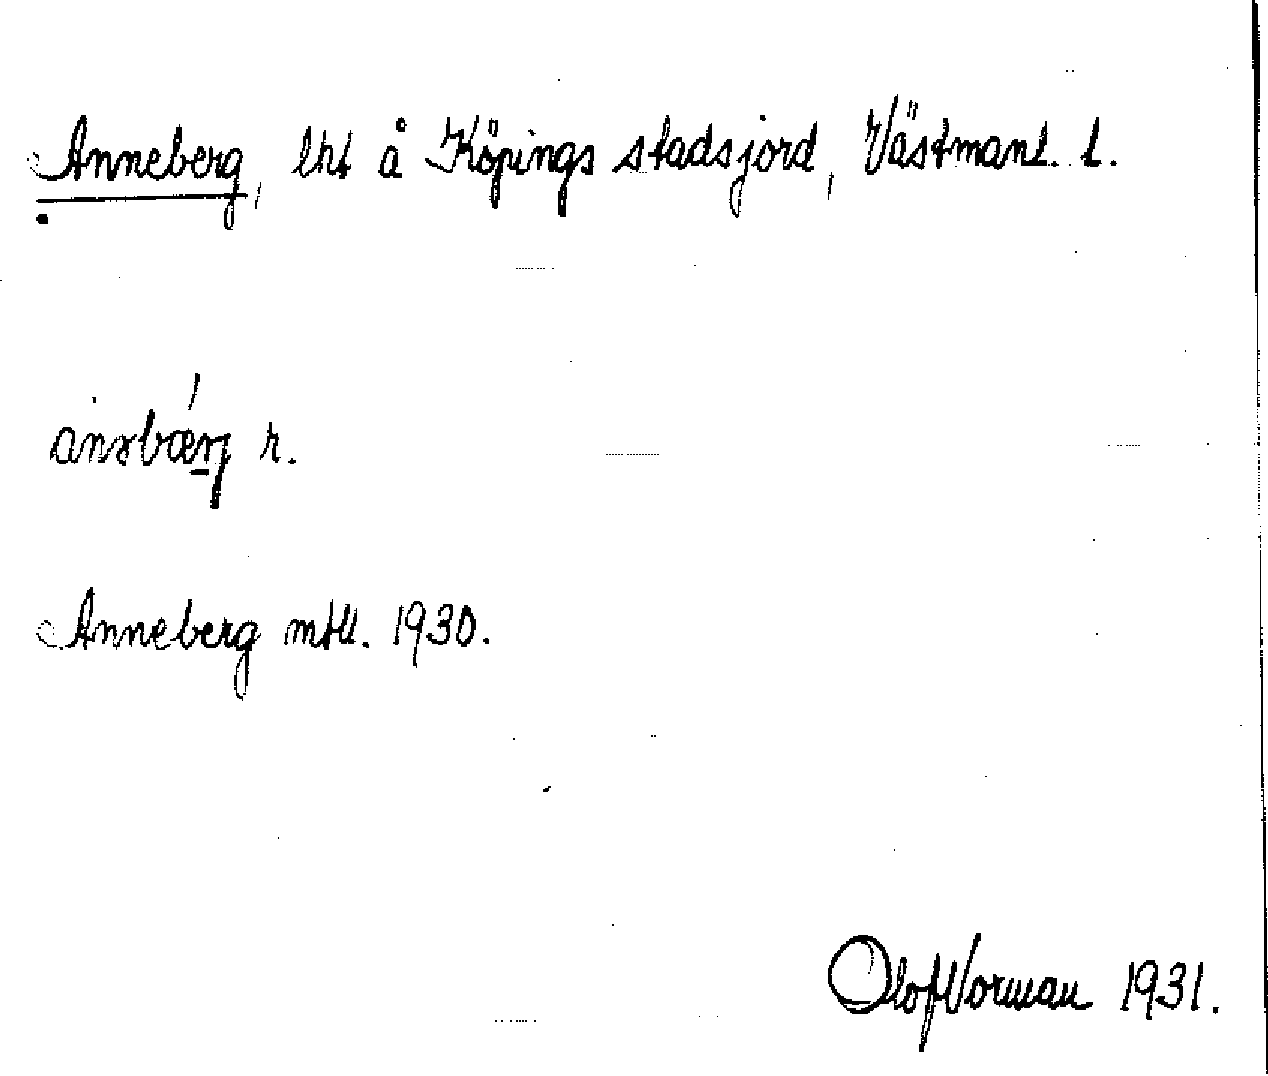 Anneberg, lht å Köpings stadsjord, Västmanl. l.
r.
Anneberg mtll. 1930.
Olof Norman 1931.